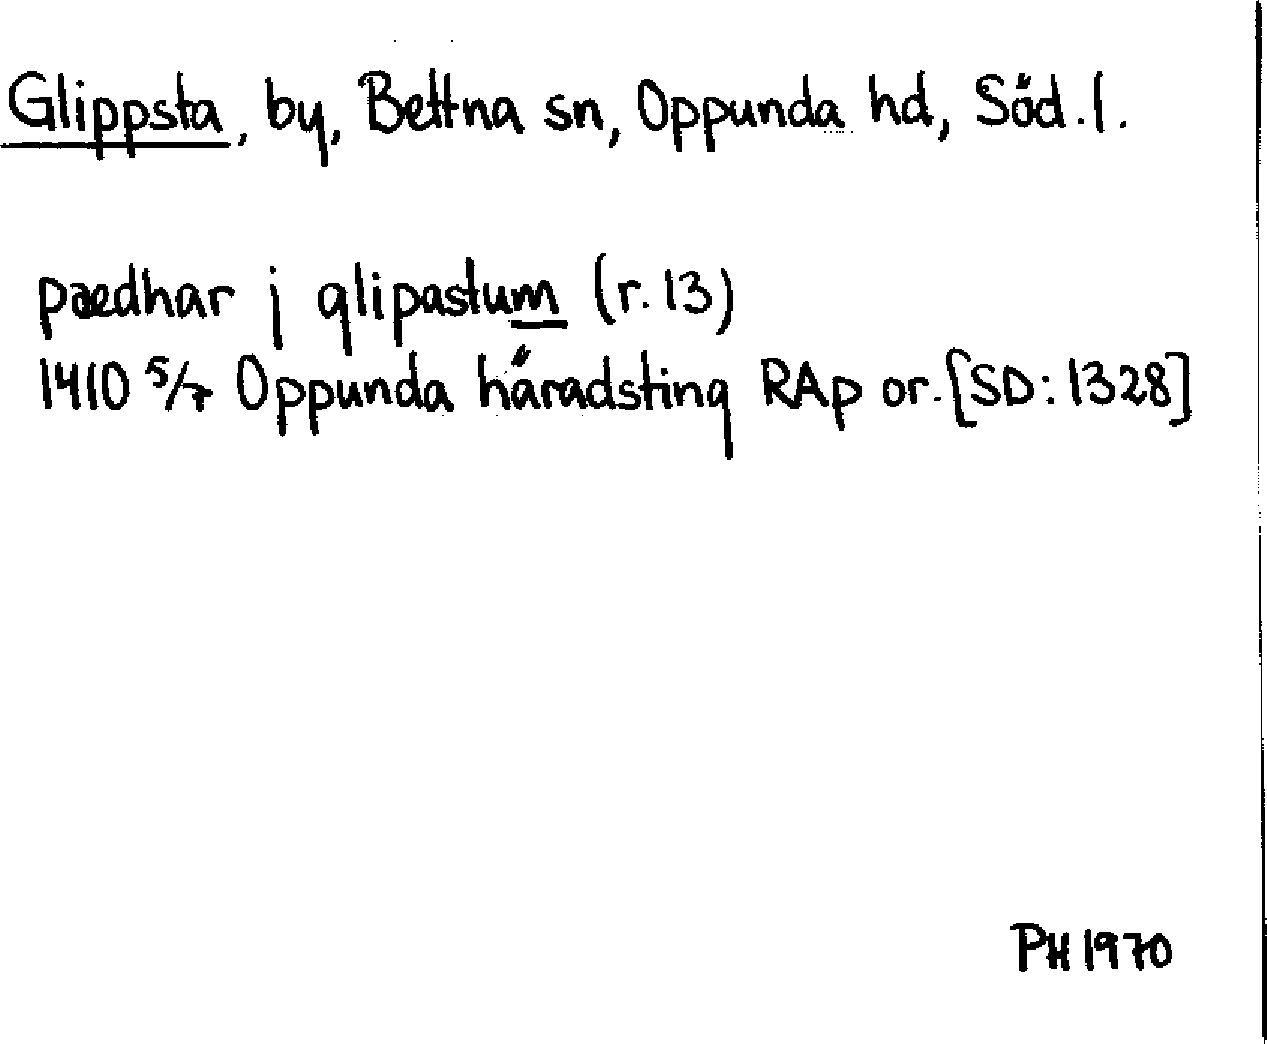 Glippsta, by, Bettna sn, Oppunda hd, Söd.l.
pædhar j glipastum (r.13)
1410 5/7 Oppunda häradsting RAp or. [SD: 1328]
PH 1970